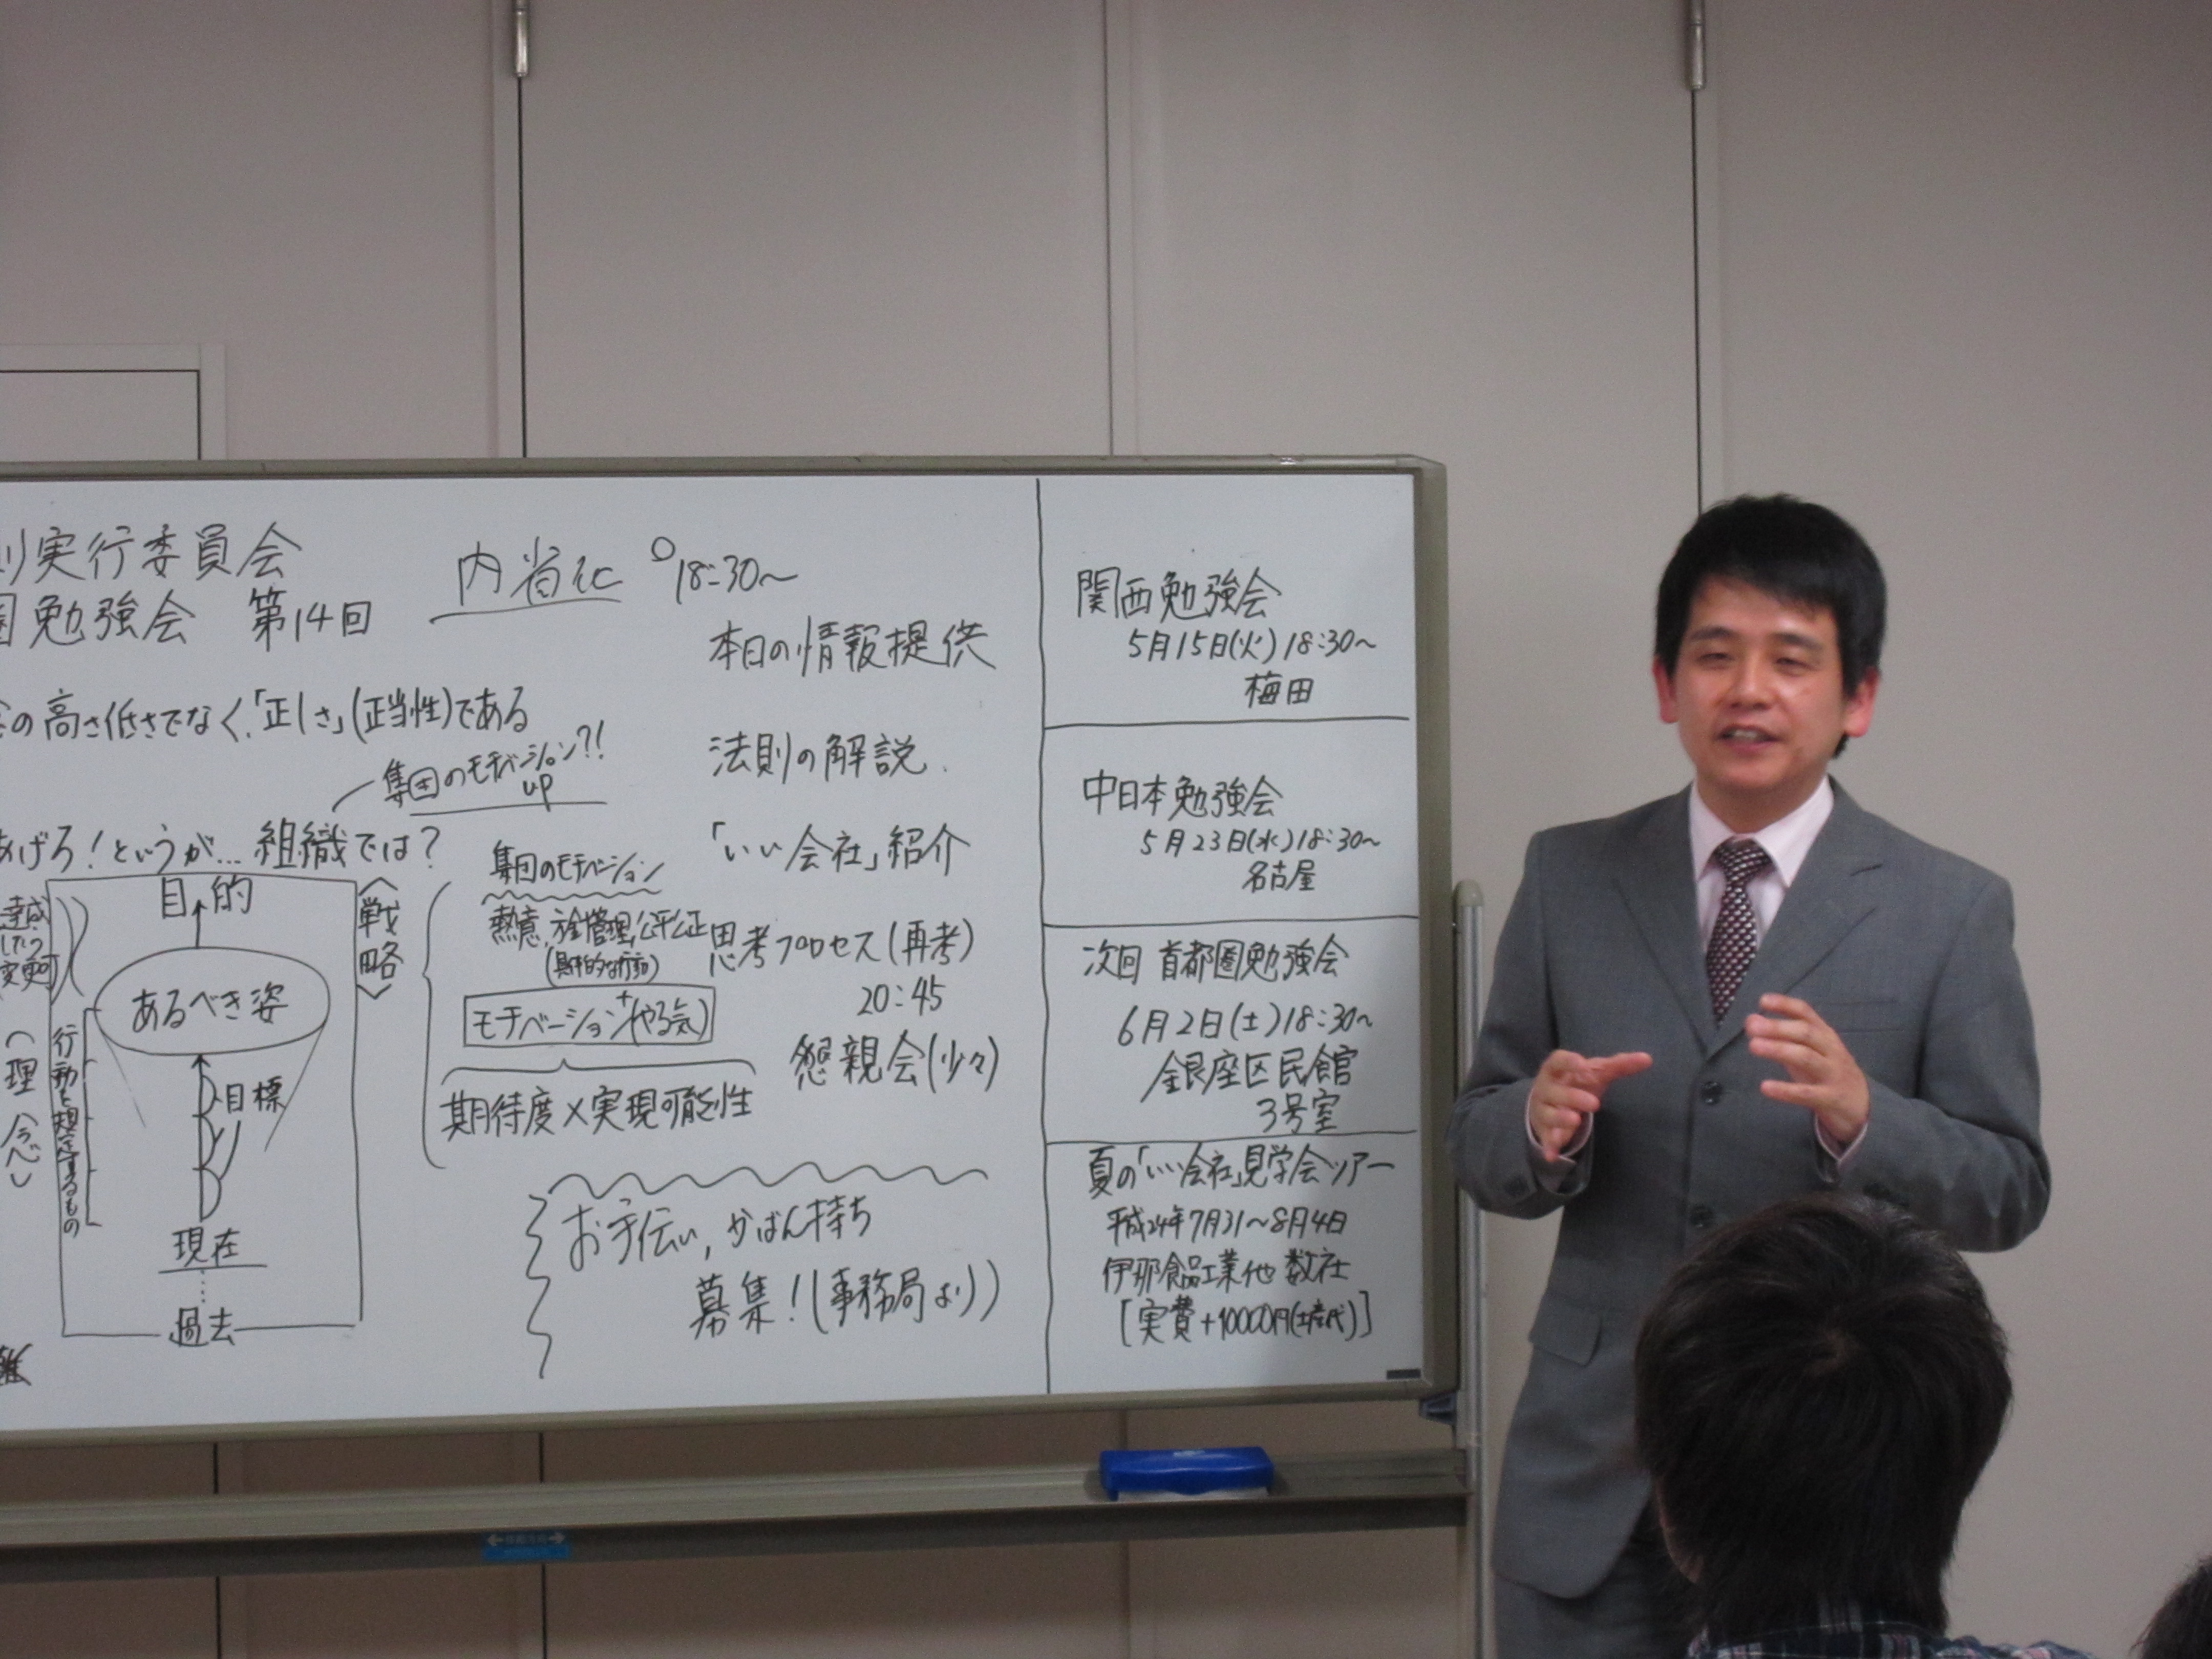 実行委員会
勉強会 第14回
の高さ低さでなく、「正しさ」(正当性)である
集団のモチベーション?!
up
あげろ!というが… 組織では?
目的
あるべき姿
目標
現在
過去
行動を規定するもの
(理念)
<戦略>
内省
18:30〜
本日の情報提供
法則の解説
「いい会社」紹介
思考プロセス(再考)
20:45
懇親会(少々)
集団のモチベーション
熱意、 管理、公平公正
(具体的な行動)
モチベーション+(やる気)
期待度×実現可能性
お手伝い, かばん持ち
募集!(事務局より)
関西勉強会
5月15日(火)18:30〜
梅田
中日本勉強会
5月23日(水)18:30〜
名古屋
次回 首都圏勉強会
6月2日(土)18:30〜
銀座区民館
3号室
夏の「いい会社」見学会ツアー
平成24年7月31〜8月4日
伊那食品工業他 数社
[実費+10000円(土産代)]